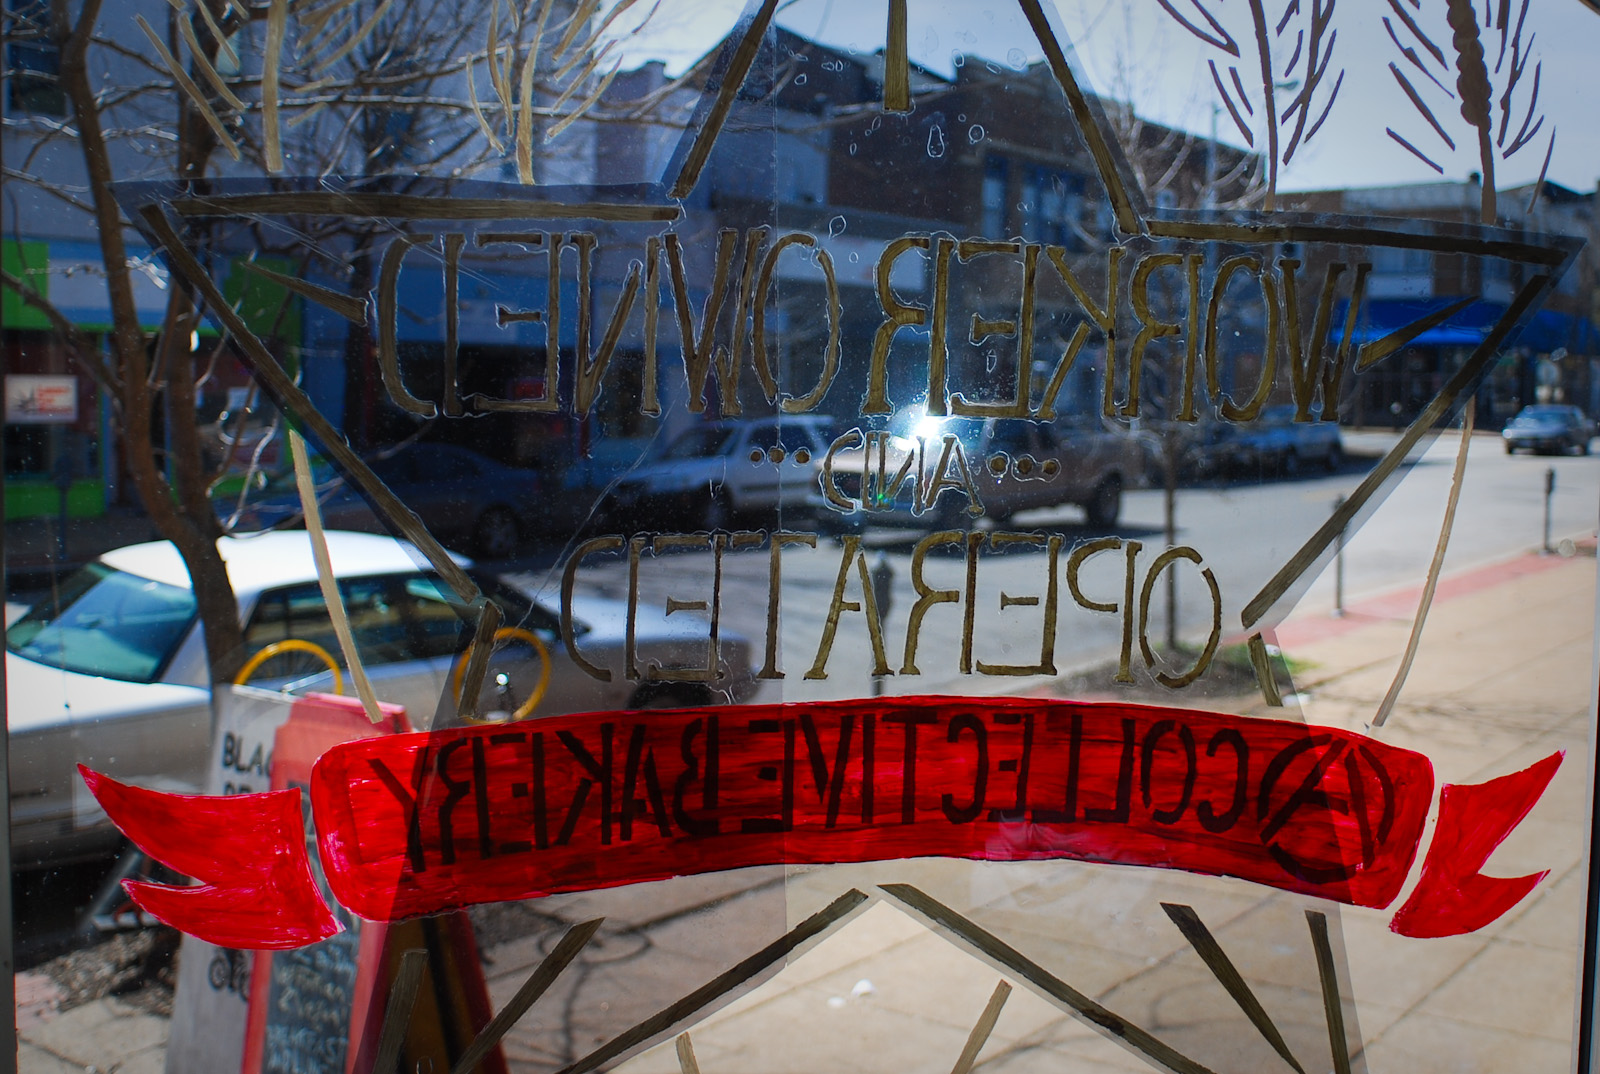 WORKER OWNED
AND
OPERATED
A COLLECTIVE BAKERY
BLAC